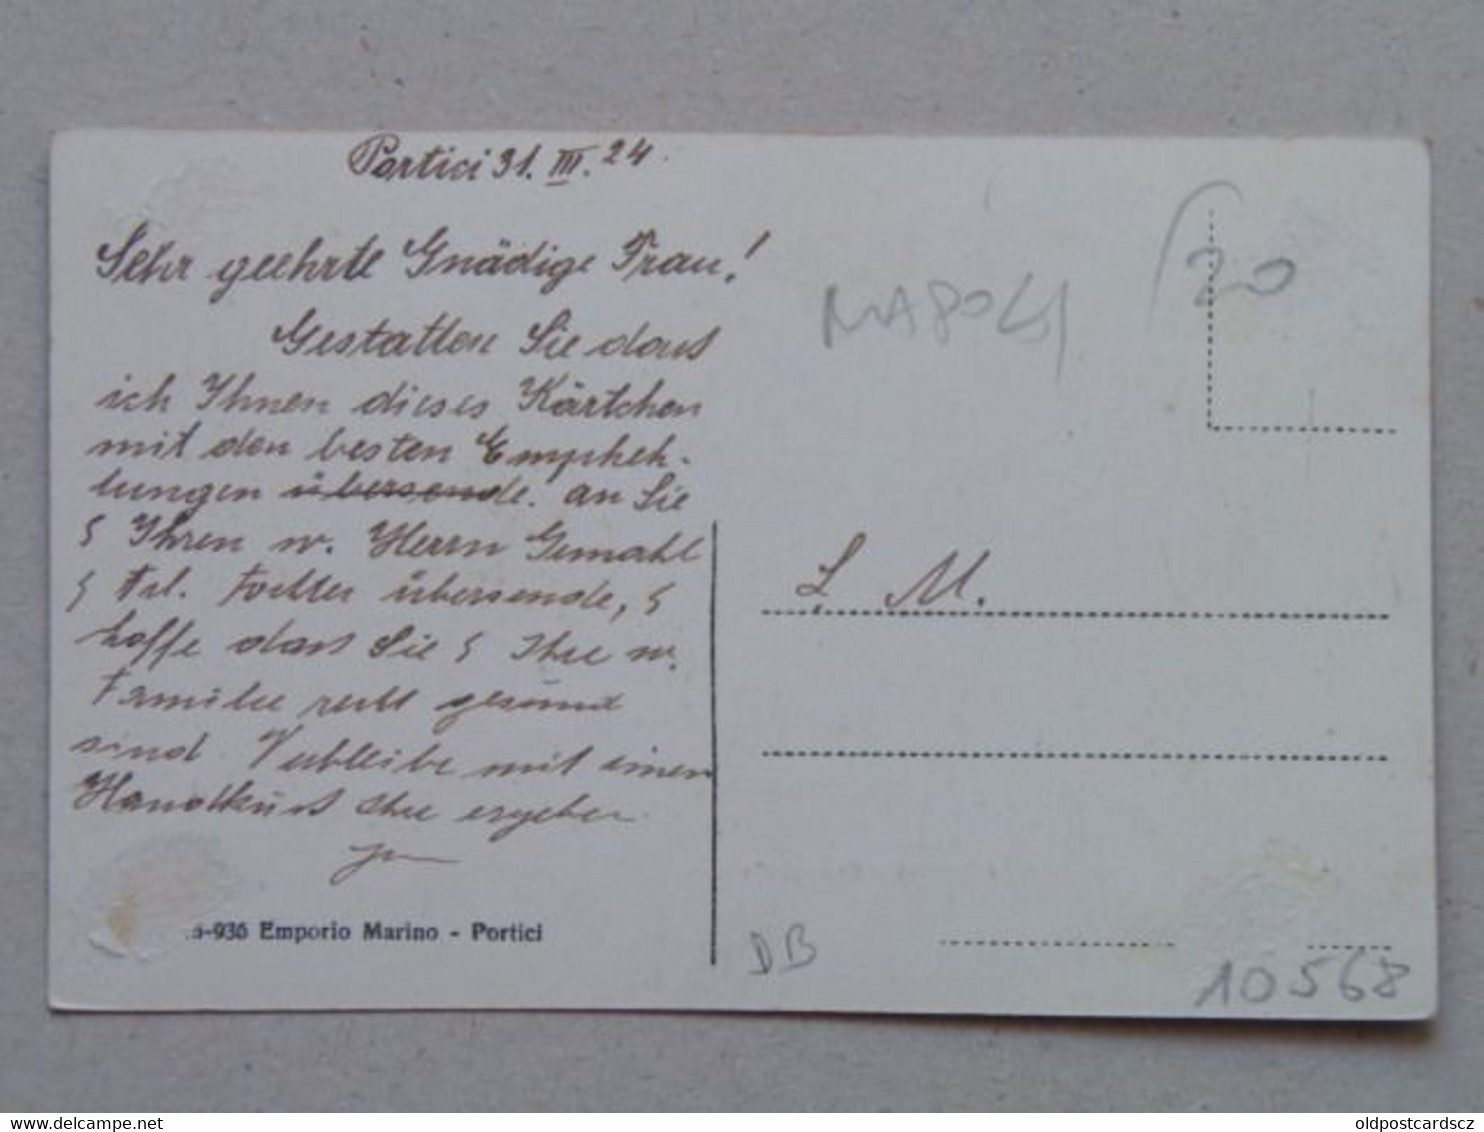 Portici 31. III. 24.
Sehr geehrte Gnädige Frau!
Gestatten Sie dass
ich Ihnen dieses Kärtchen
mit den besten Empfeh-
lungen übersende. an Sie
& Ihren w. Herrn Gemahl
& Frl. Tochter übersende, &
hoffe dass Sie & Ihre w.
Familie recht gesund
sind. Verbleibe mit einem
Handkuss Ihr ergeben
-936 Emporio Marino - Portici
NAPOLI
20
L. M.
DB
10568
oldpostcardscz